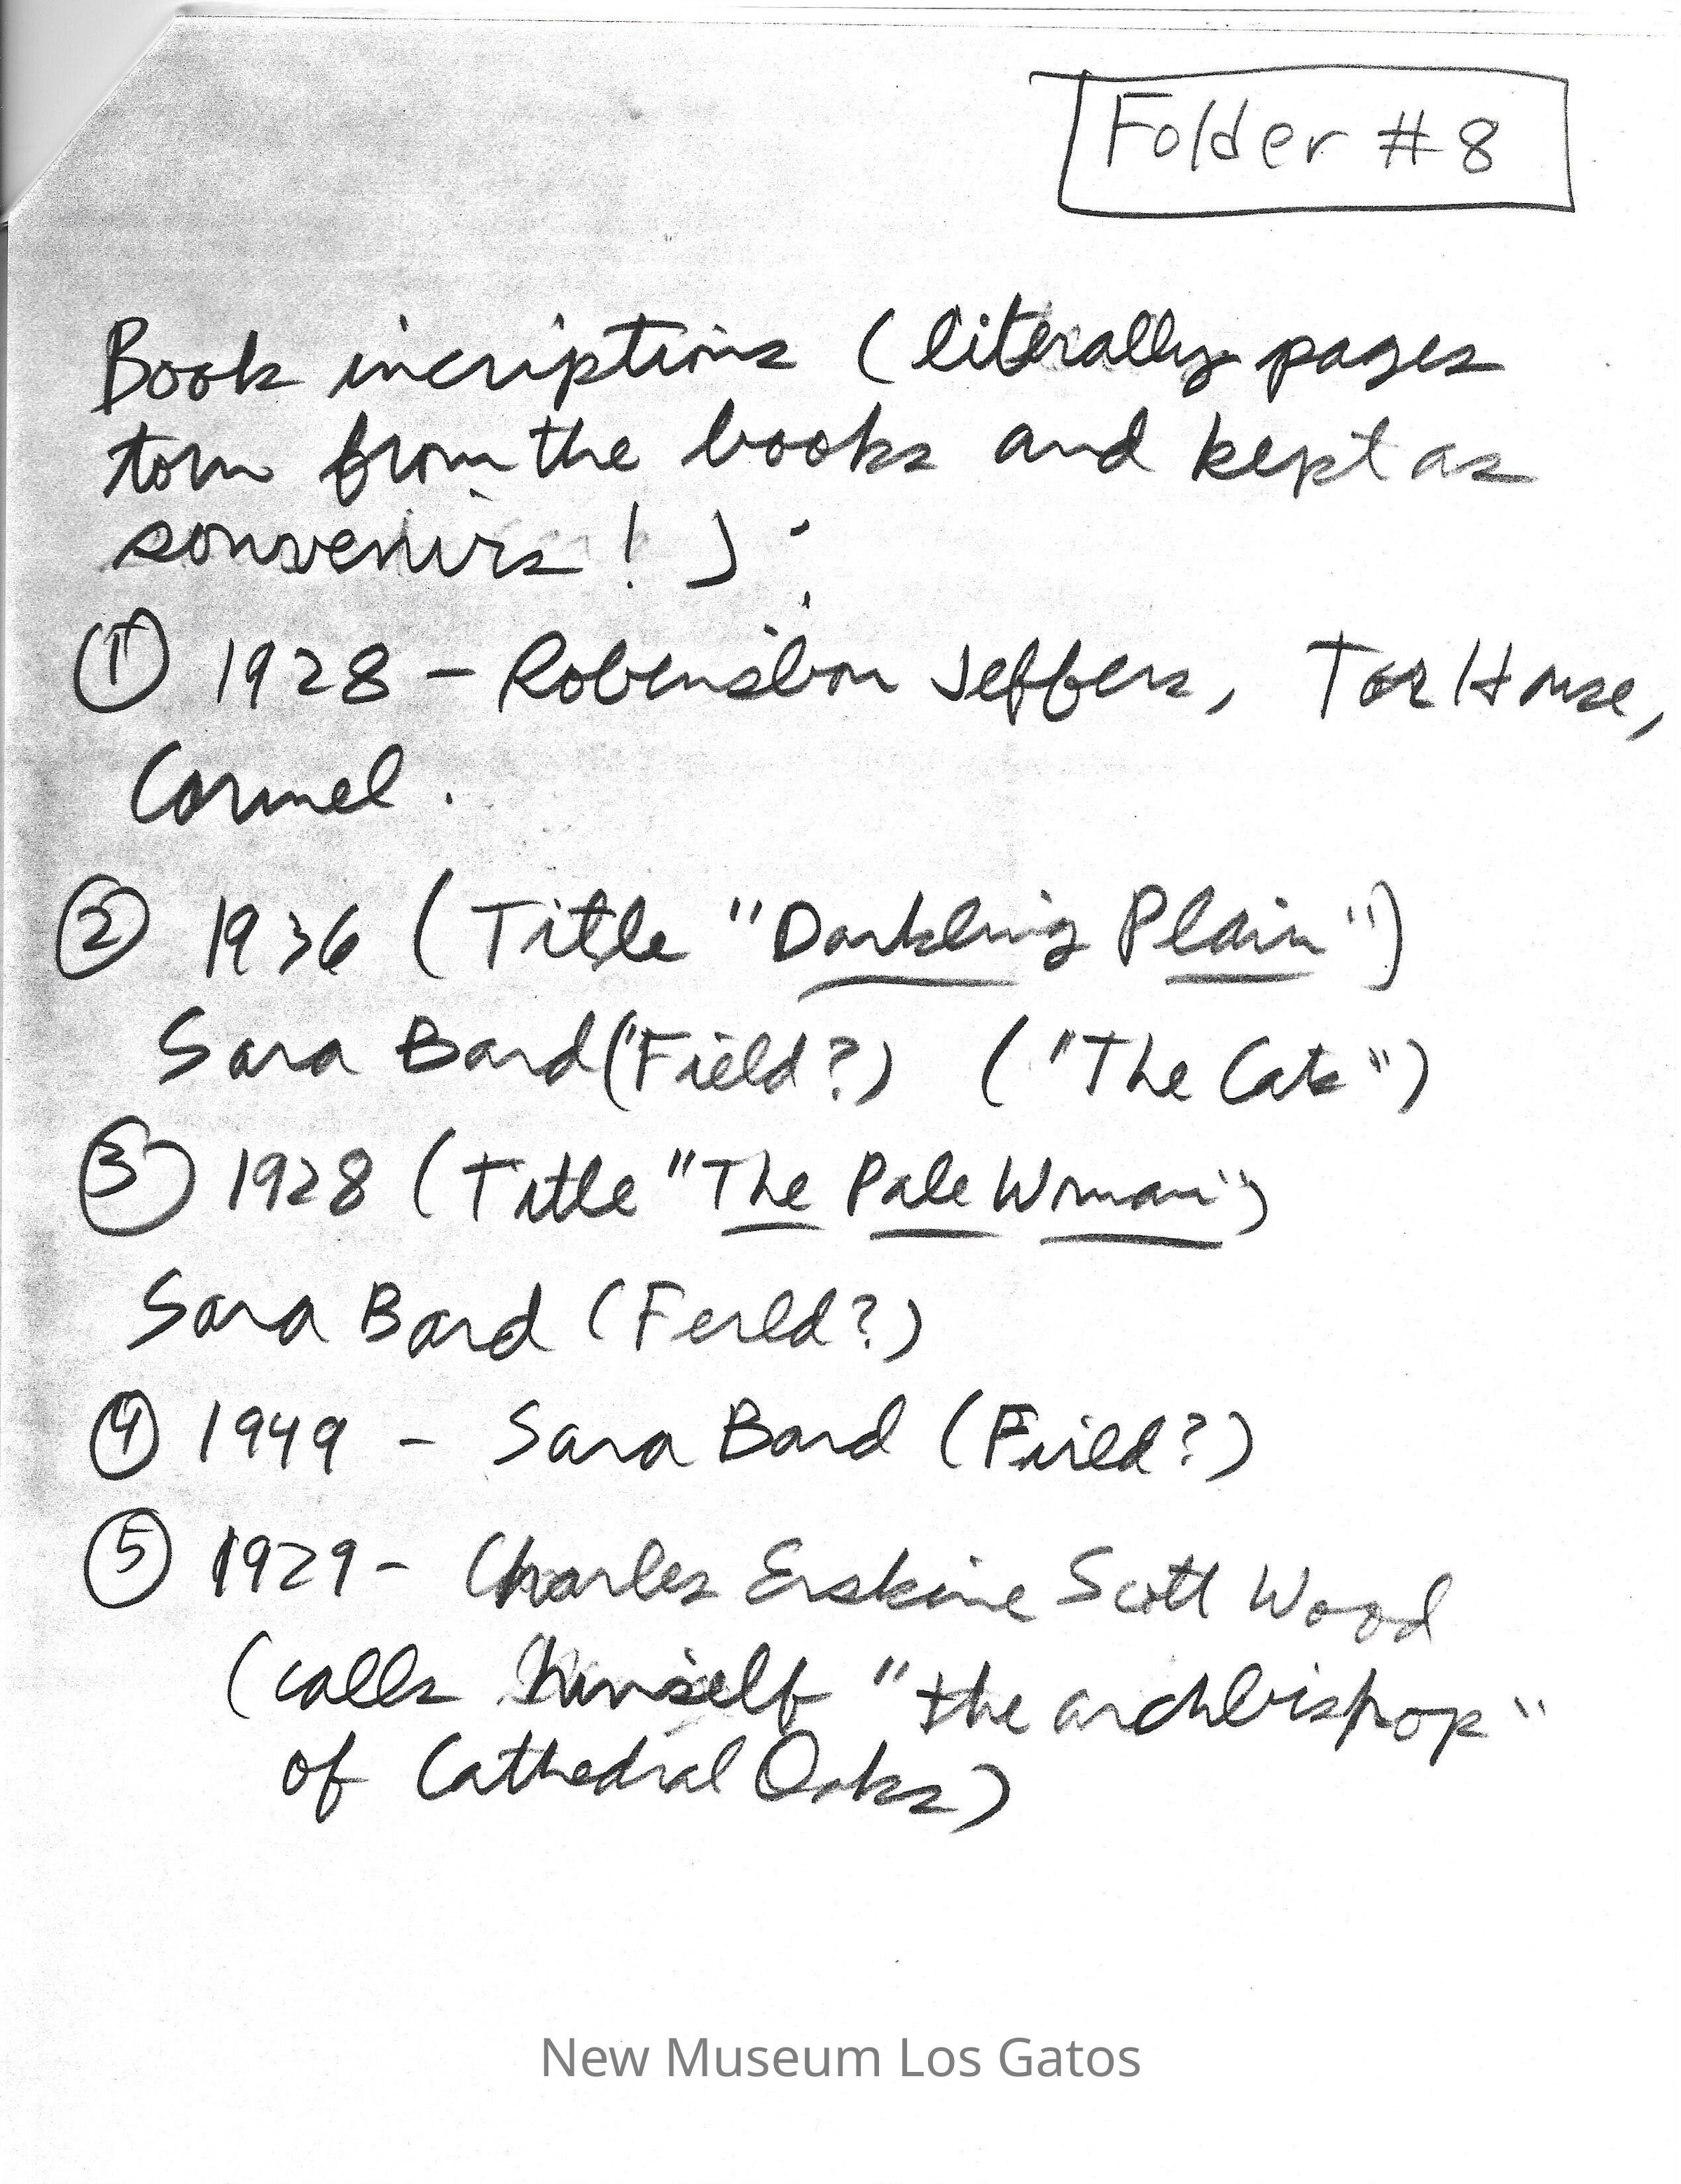 Folder #8
Book incriptions (literally pages
torn from the books and kept as
souvenirs!):
① 1928 - Robinson Jeffers, Tor House,
Carmel.
② 1936 (Title "Darkling Plain")
Sara Bard (Field?) ("The Cats")
③ 1928 (Title "The Pale Woman")
Sara Bard (Field?)
④ 1949 - Sara Bard (Field?)
⑤ 1929 - Charles Erskine Scott Wood
(calls himself "the archbishop"
of Cathedral Oaks)
New Museum Los Gatos